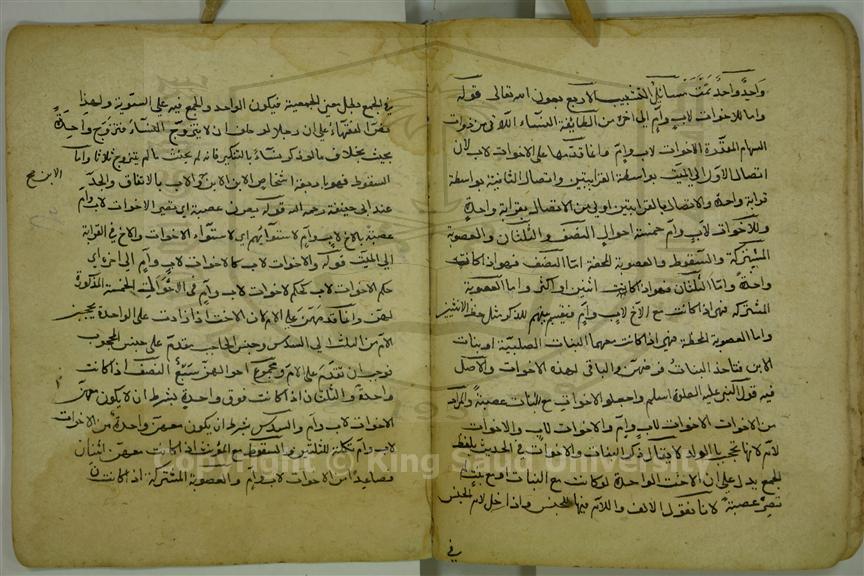 واحدٍ واحدٍ تمت مسائل التشبيب الاربع بعون الله تعالى قوله
واما للاخوات لابٍ وامٍ الى اخره من الطائفة النساء اللاتي من ذوات
السهام المقدرة الاخوات لاب وامٍ وانما قدمها على الاخوات لاب لان
اتصال الاول الى الميت بواسطة القرابتين واتصال الثانية بواسطة
قرابة واحدة والاتصال بالقرابتين اولى من الاتصال بقرابة واحدةٍ
وللاخوات لاب وام خمسة احوالٍ النصف والثلثان والعصوبة
المشتركة والسقوط والعصوبة المحضة اما النصف فهو اذا كانت
واحدةً واما الثلثان فهو اذا كانت اثنين او اكثر واما العصوبة
المشتركة فهي اذا كانت مع الاخ لابٍ وامٍ فيقسم بينهم للذكر مثل حظ الانثيين
واما العصوبة المحضة فهي اذا كانت معهما البنات الصلبية او بنات
الابن فتاخذ البنات فرضهن والباقى لهذه الاخوات والاصل
فيه قول النبى عليه الصلوة والسلم واجعلوا الاخوات مع البنات عصبةً والمراد
من الاخوات الاخوات لاب وامٍ والاخوات لابٍ والاخوات
لام لانها تحجب بالولد لا يقال ذكر البنات والاخوات فى الحديث بلفظ
الجمع يدل على ان الاخت الواحدة لو كانت مع البنات او مع بنت
تصير عصبةً لانا نقول الالف واللام فيها للجنس واذا دخل لام الجنس
فى
فى الجمع بطل معنى الجمعية فيكون الواحد والجمع فيه على السوية ولهذا
الفقهاء على ان رجلا لو حلف ان لا يتزوج النساء فتزوج واحدةً
يحنث بخلاف ما لو ذكر نساءً بالتنكير فانه لم يحنث ما لم يتزوج ثلاثا واما
السقوط فهو باربعة اشخاص الابن الابن والاب بالاتفاق والجد
عند ابى حنيفة رحمه الله قوله يصرن عصبة اى تصير الاخوات لاب وام
عصبة بالاخ لابٍ وامٍ لاستوائهم اى لاستواء الاخوات والاخ فى القرابة
الى الميت قوله والاخوات لاب كالاخوات لاب وام الى اخره اى
حكم الاخوات لاب كحكم الاخوات لاب وام فى الاحوال الخمسة المذكورة
لهن وانما قدمهن على الام لان الاخت اذا زادت على الواحدة يحجبن
الام من الثلث الى السدس وجنس الحاجب يقدم على جنس المحجوب
فوجب ان تقدم على الام ومجموع احوالهن سبع النصف اذا كانت
واحدة والثلثان اذا كانت فوق واحدة بشرط ان لا يكون معهن
الاخوات لاب وام والسدس بشرط ان يكون معهن واحدة من الاخوات
لاب وام تكملة للثلثين والسقوط مع المؤنث اذا كانت معهن اثنتان
فصاعدا من الاخوات لاب وام والعصوبة المشتركة اذا كانت
الابن صح
Copyright © King Saud University